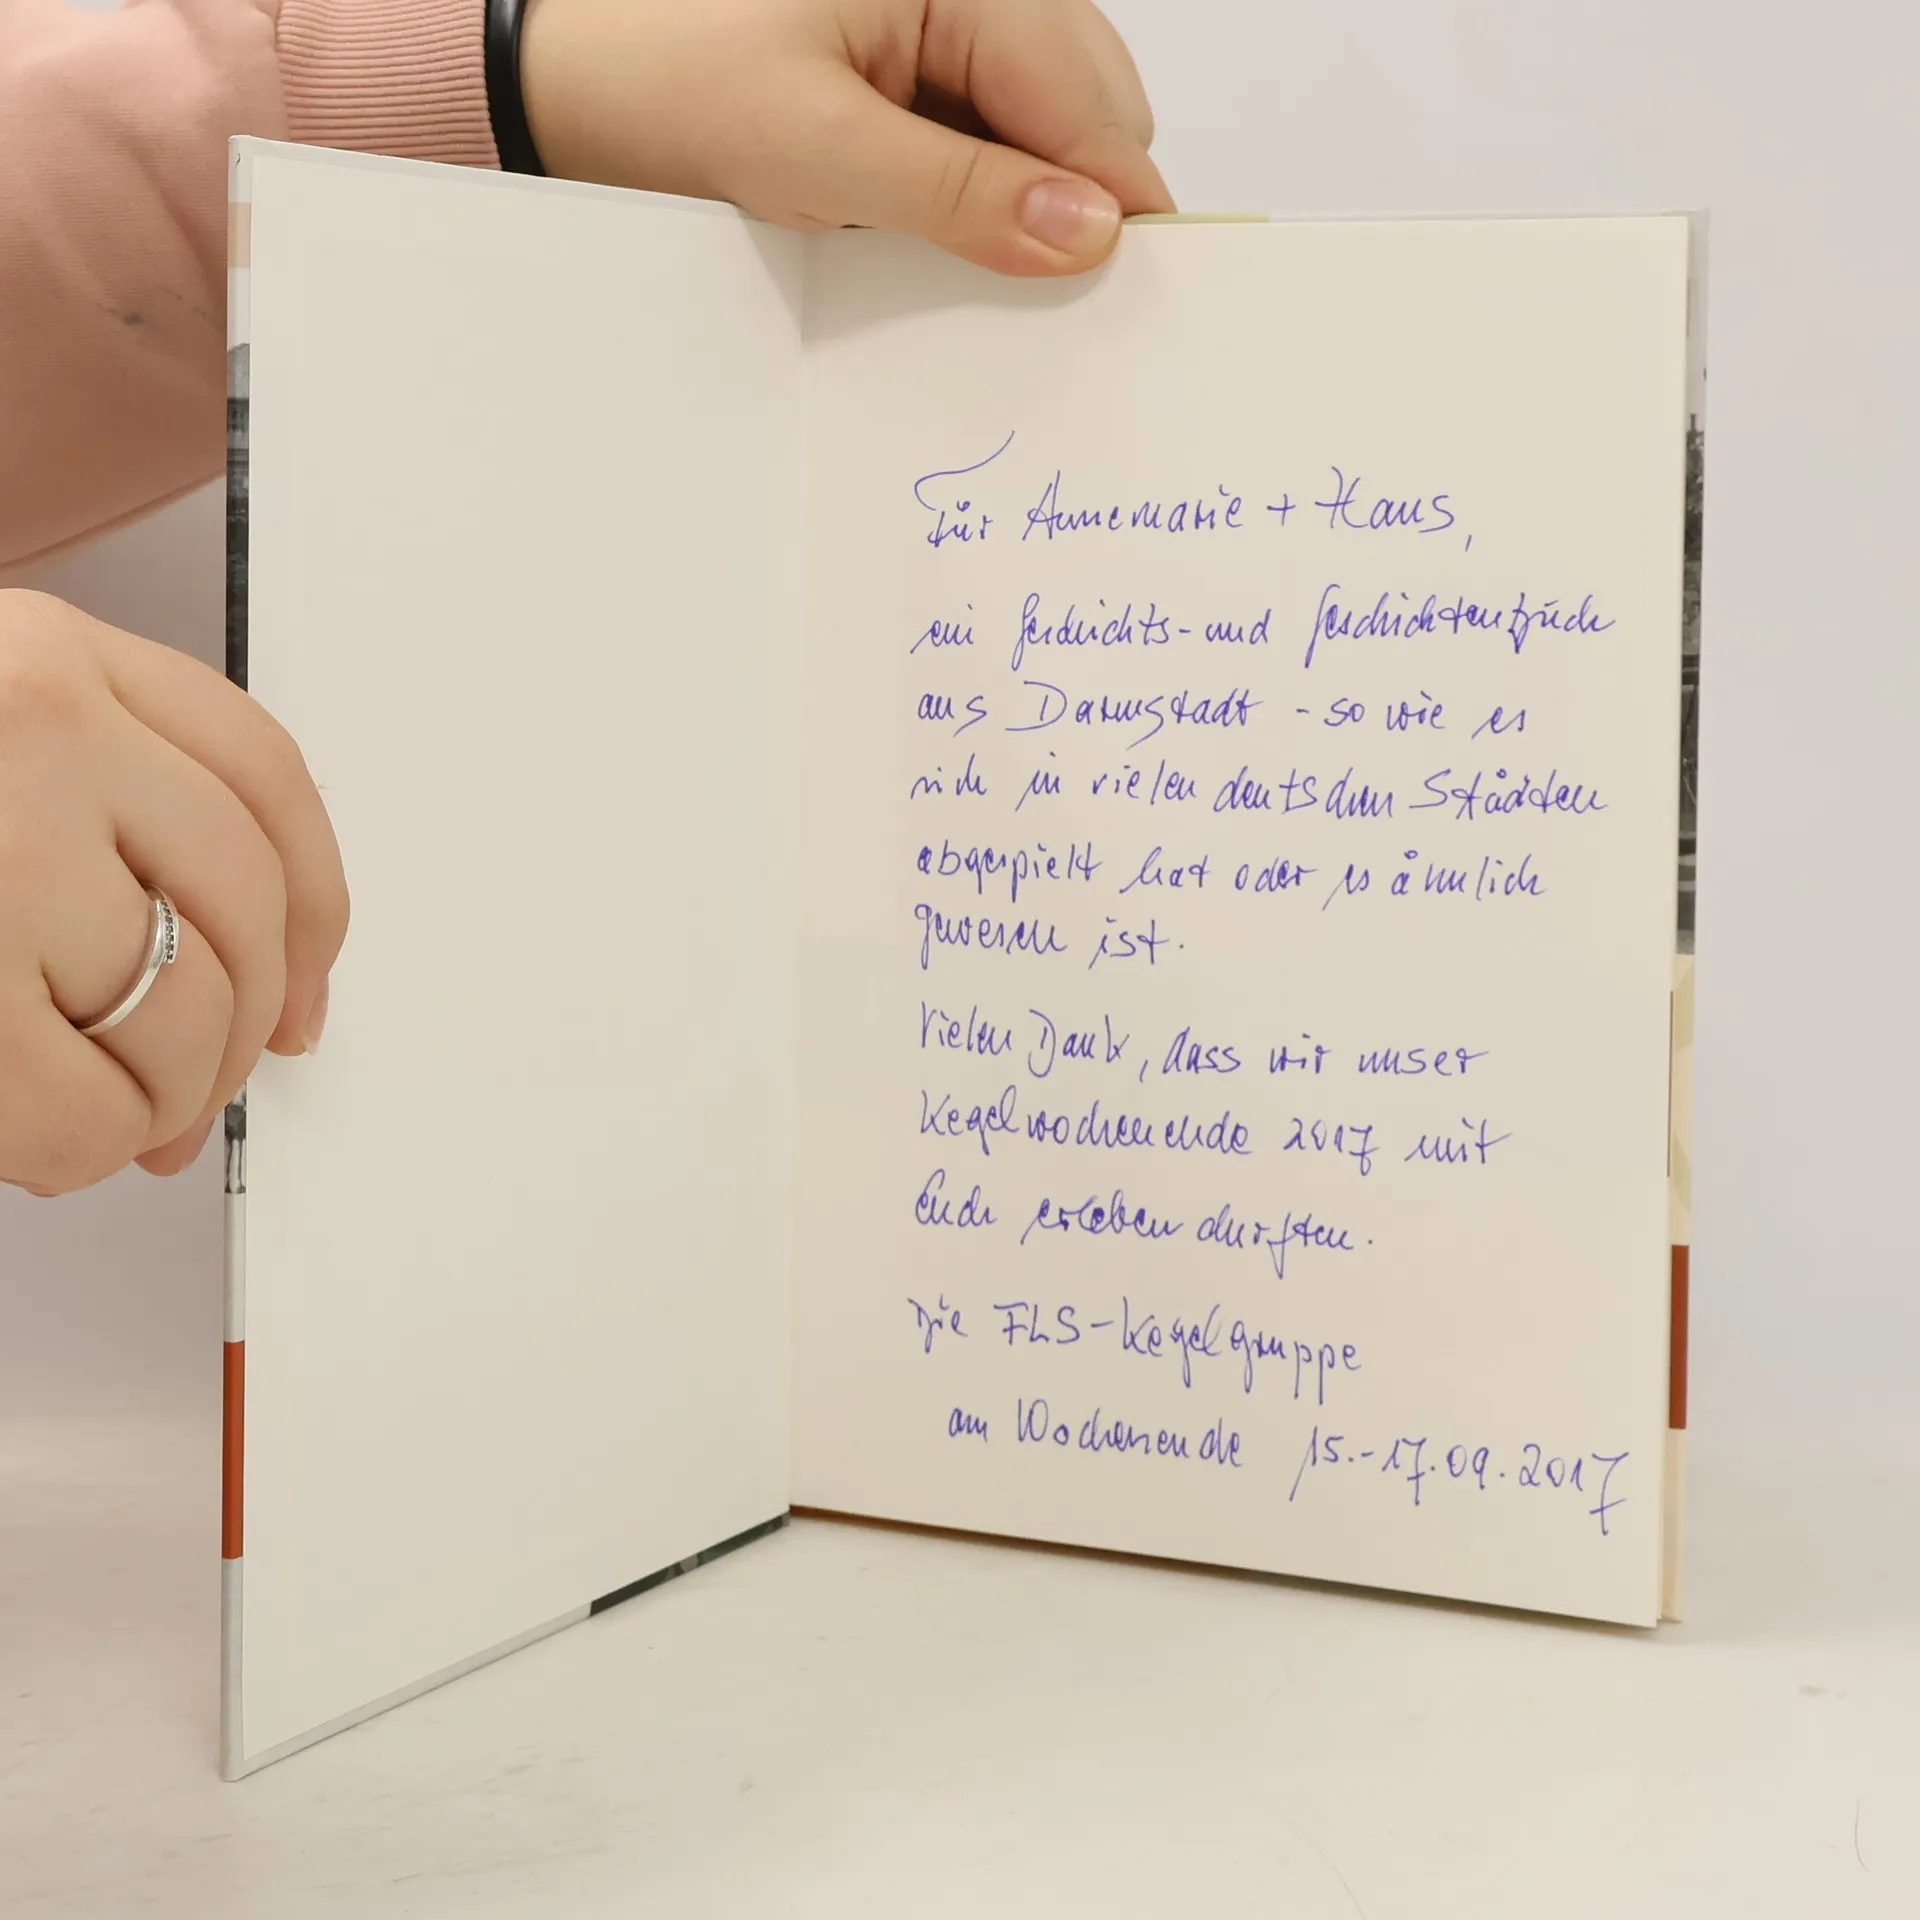 Für Annemarie + Hans,
ein Geschichts- und Geschichtenbuch
aus Darmstadt - so wie es
sich in vielen deutschen Städten
abgespielt hat oder es ähnlich
gewesen ist.
Vielen Dank, dass wir unser
Kegelwochenende 2017 mit
Euch erleben durften.
Die FLS-Kegelgruppe
am Wochenende 15.-17.09.2017